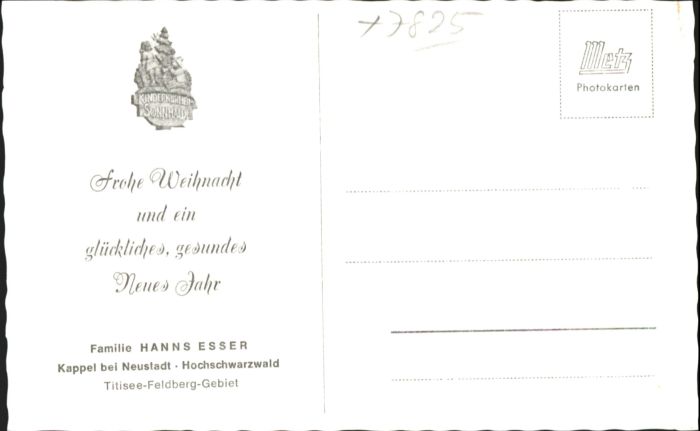 KINDERKURHEIM
SONNHALDE
Frohe Weihnacht
und ein
glückliches, gesundes
Neues Jahr
Familie HANNS ESSER
Kappel bei Neustadt · Hochschwarzwald
Titisee-Feldberg-Gebiet
+7825
Metz
Photokarten